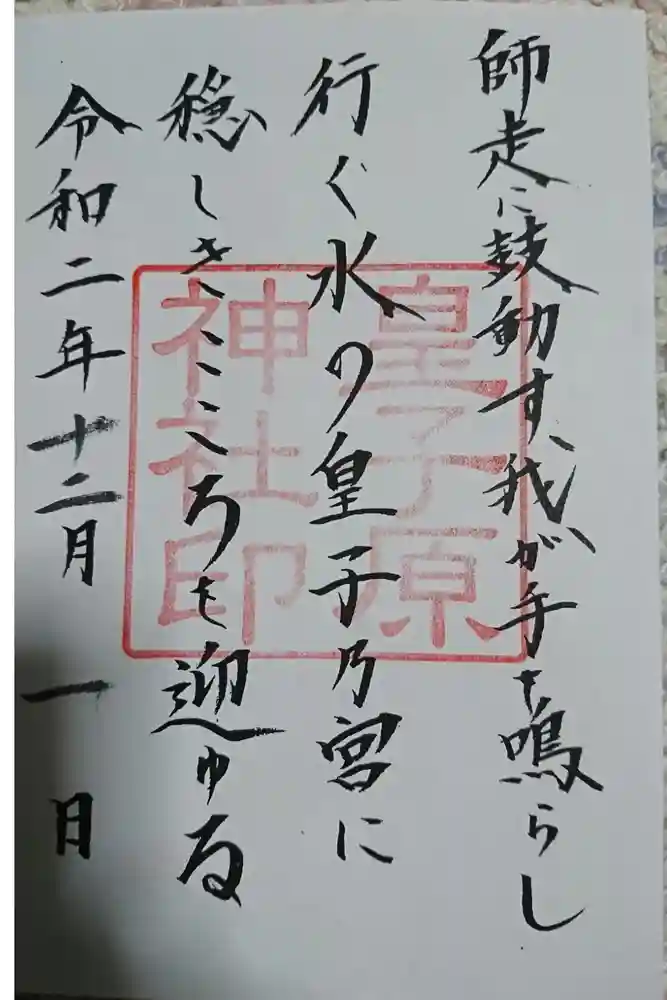 師走に鼓動す、我が手も鳴らし
行く水の皇子乃宮に
穏しきこころも迎ゆる
令和二年十二月一日
皇子原
神社印